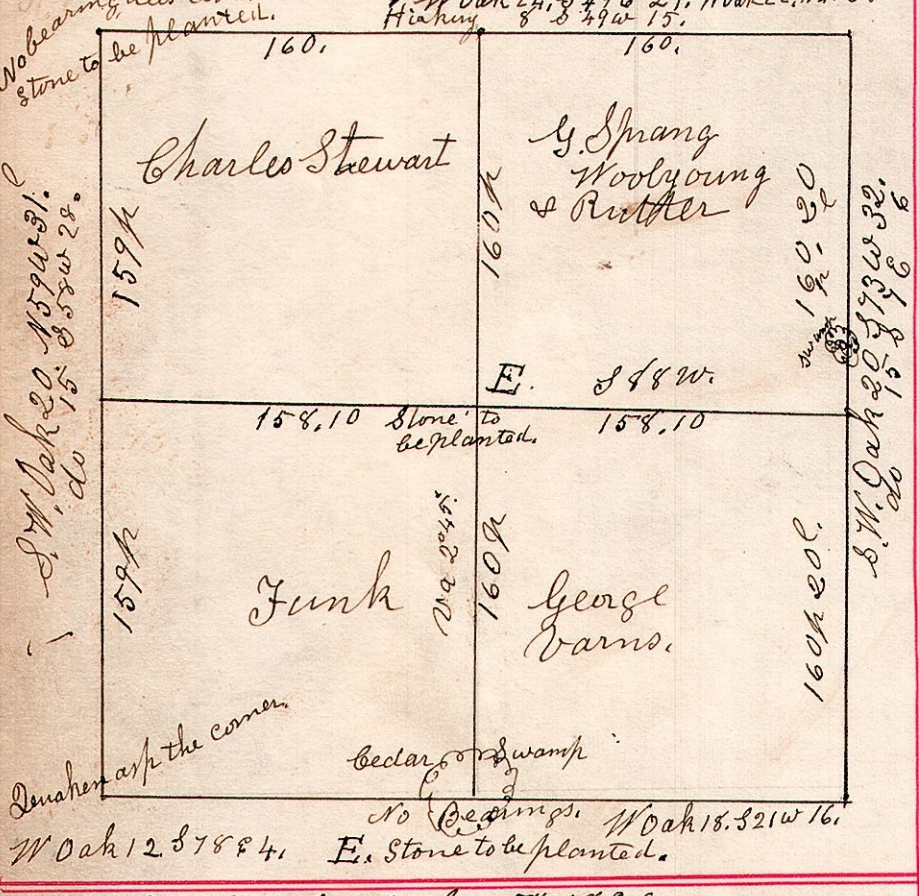 No bearing
Stone to be planted.
Hickory 8 S 49 W 15.
160.
160.
Charles Stewart
G. Sprang
Woolyoung
& Rutter
159 p
160 p
160. 20
p l
swamp
S. W. Oak 20 N 59 W 31.
do 15 S 58 W 28.
S. W. Oak 20 S 73 W 32.
do 15 S 7 E 6
E.
S 88 W.
158,10
Stone to
be planted.
158,10
159 p
Funk
Var 2° 45'
160 p
George
Varns.
160 p 20 l.
Quaken asp the corner.
Cedar Swamp
No Bearings.
W Oak 18. S 21 W 16.
W Oak 12 S 78 E 4.
E. Stone to be planted.